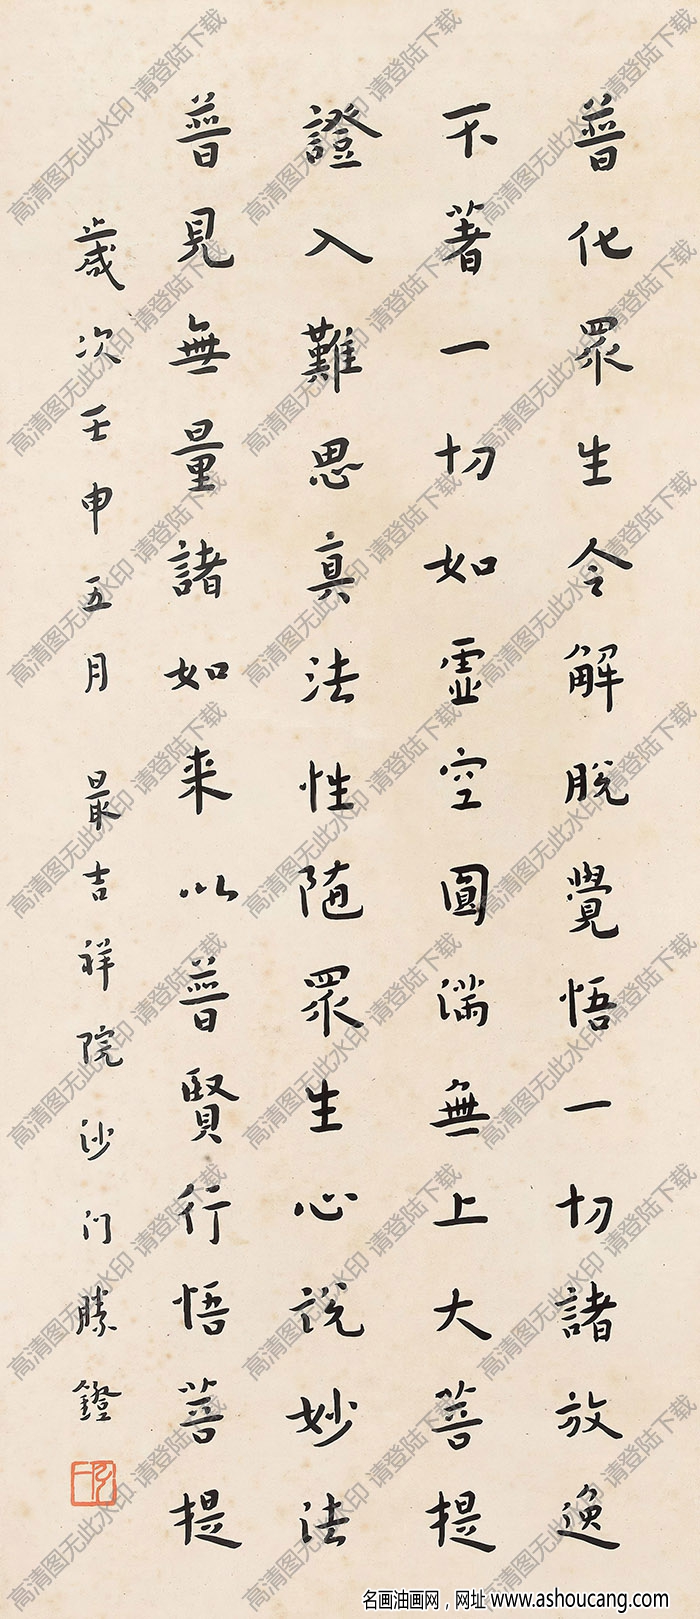 普化眾生令解脫覺悟一切諸放逸
不著一切如虛空圓滿無上大菩提
證入難思真法性随眾生心說妙法
普見無量諸如来以普賢行悟菩提
歲次壬申五月 最吉祥院沙门勝鐙
高清图无此水印 请登陆下载
名画油画网，网址 www.ashoucang.com